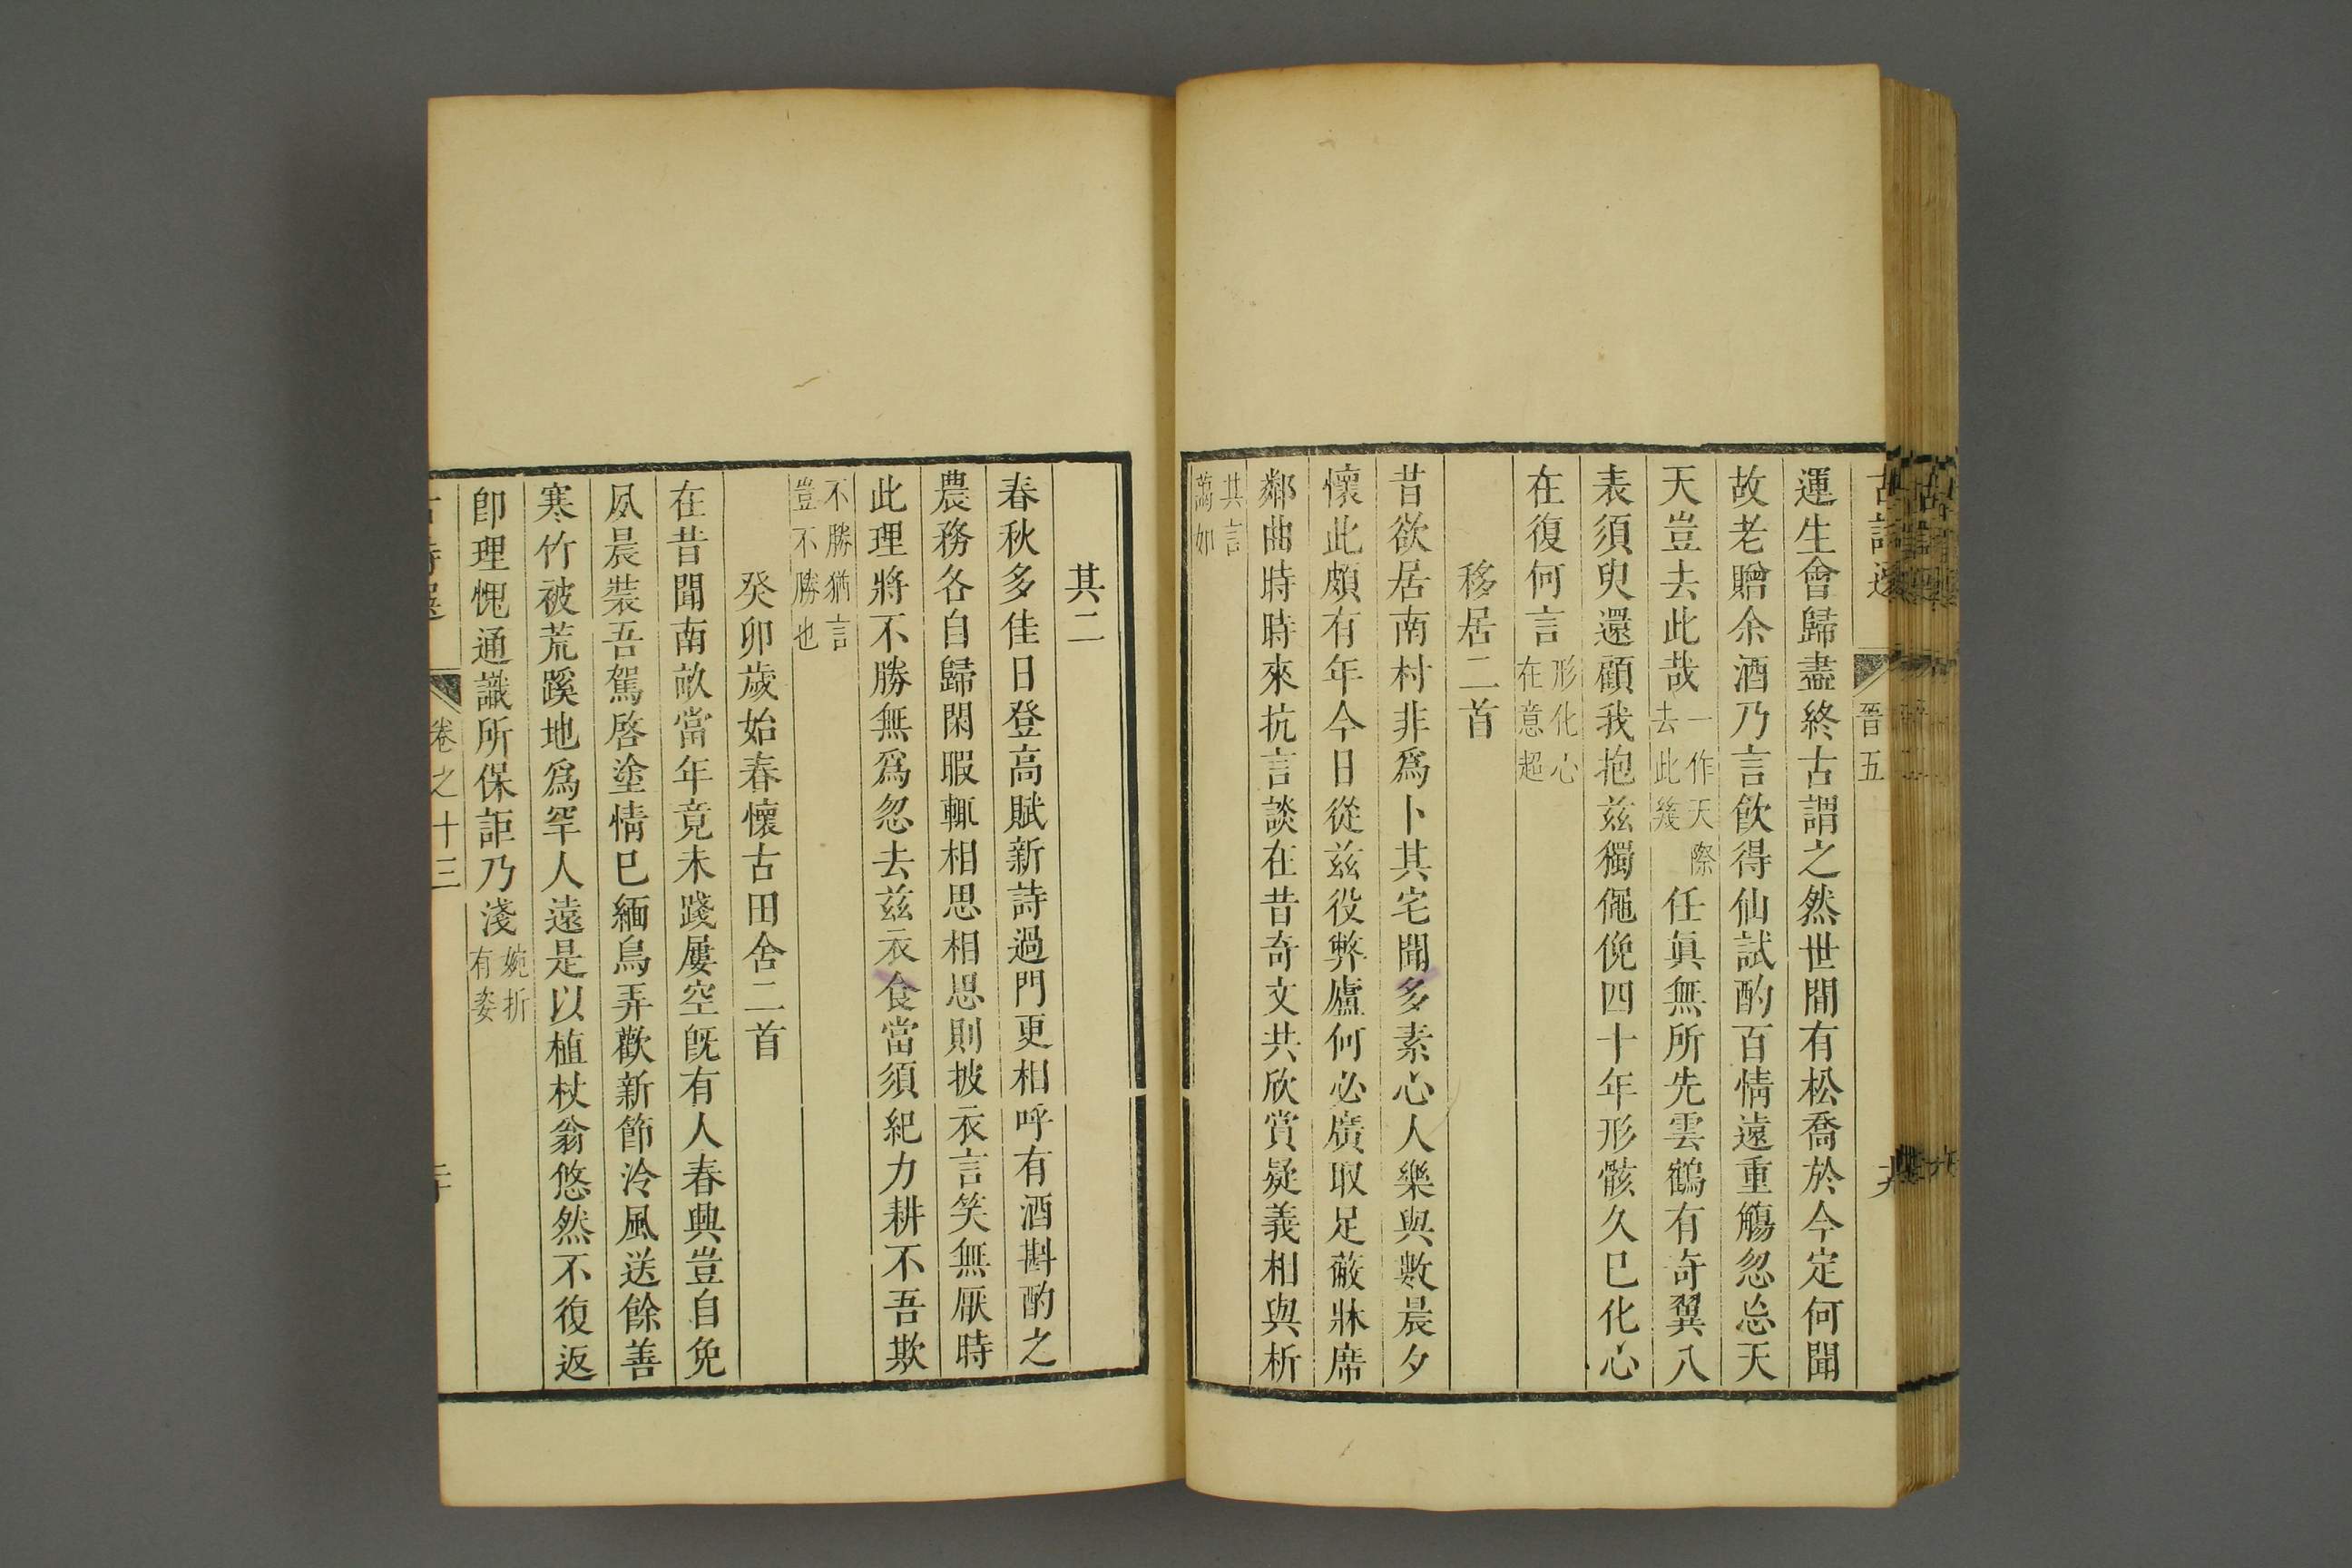 晉五
運生會歸盡終古謂之然世間有松喬於今定何聞
故老贈余酒乃言飲得仙試酌百情遠重觴忽忘天
天豈去此哉一作天際去此幾任眞無所先雲鶴有奇翼八
表須臾還顧我抱兹獨僶俛四十年形骸久已化心
在復何言形化心在意超
移居二首
昔欲居南村非爲卜其宅聞多素心人樂與數晨夕
懷此頗有年今日從兹役弊廬何必廣取足蔽牀席
鄰曲時時來抗言談在昔奇文共欣賞疑義相與析
其言藹如
其二
春秋多佳日登高賦新詩過門更相呼有酒斟酌之
農務各自歸閑暇輒相思相思則披衣言笑無厭時
此理將不勝無爲忽去兹衣食當須紀力耕不吾欺
不勝猶言豈不勝也
癸卯歲始春懷古田舍二首
在昔聞南畝當年竟未踐屢空旣有人春興豈自免
夙晨裝吾駕啓塗情已緬鳥弄歡新節泠風送餘善
寒竹被荒蹊地爲罕人遠是以植杖翁悠然不復返
卽理愧通識所保詎乃淺婉折有姿
卷之十三